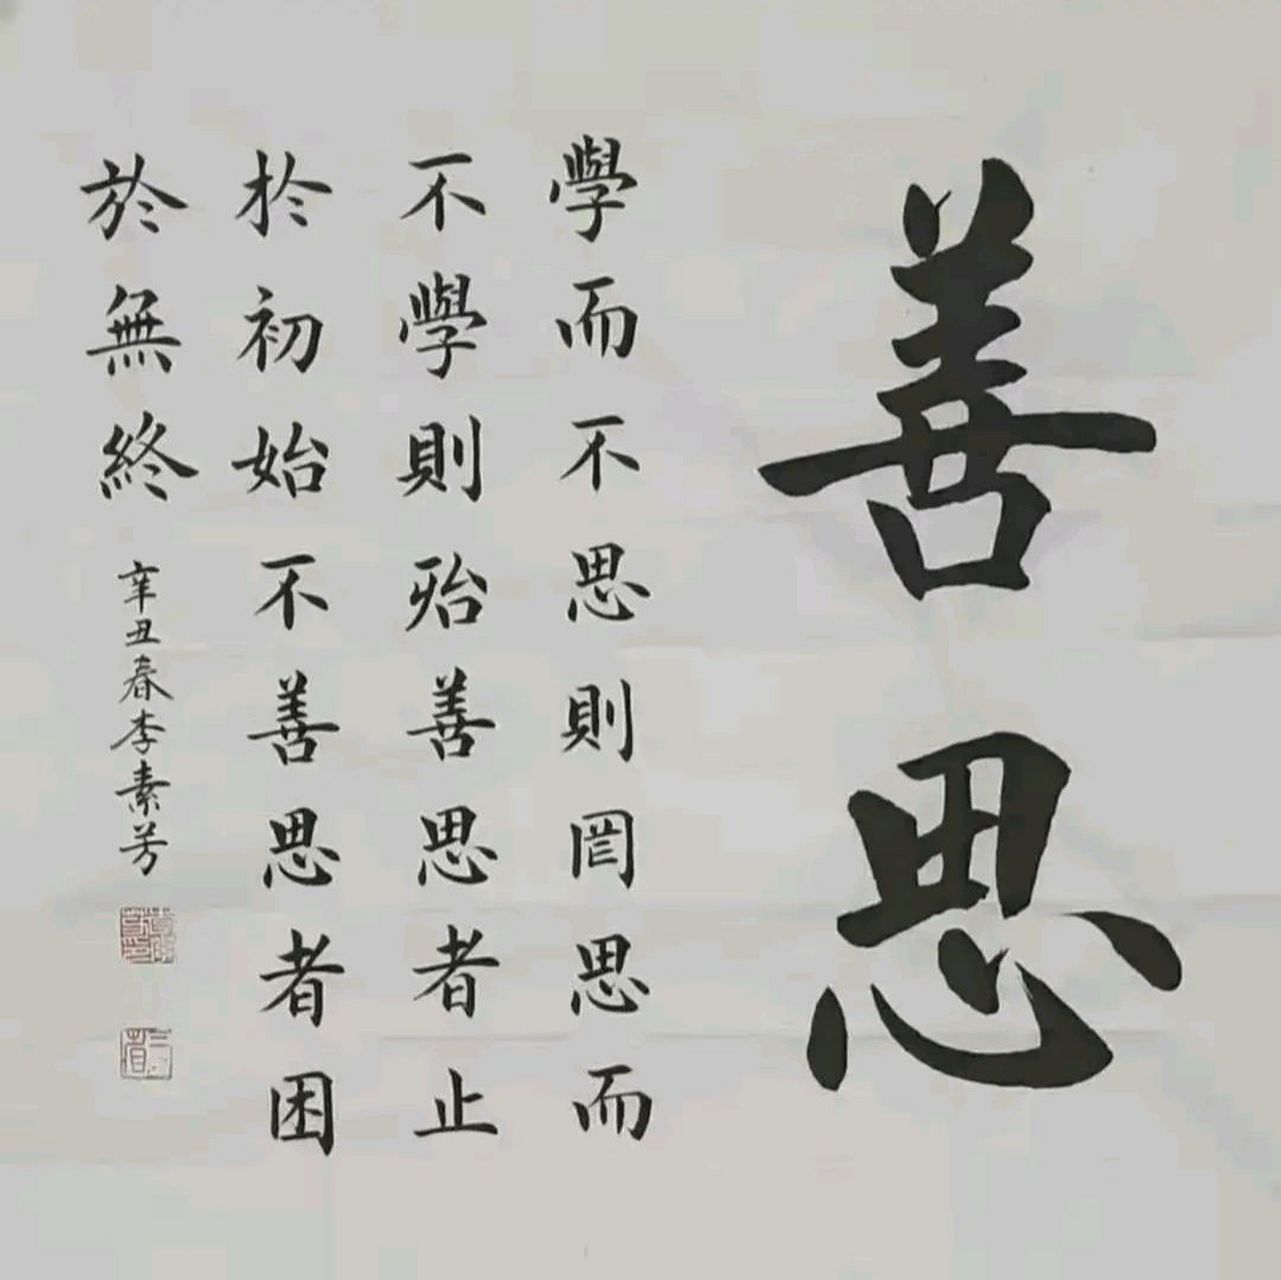 善思
學而不思則罔思而
不學則殆善思者止
於初始不善思者困
於無終
辛丑春李素芳